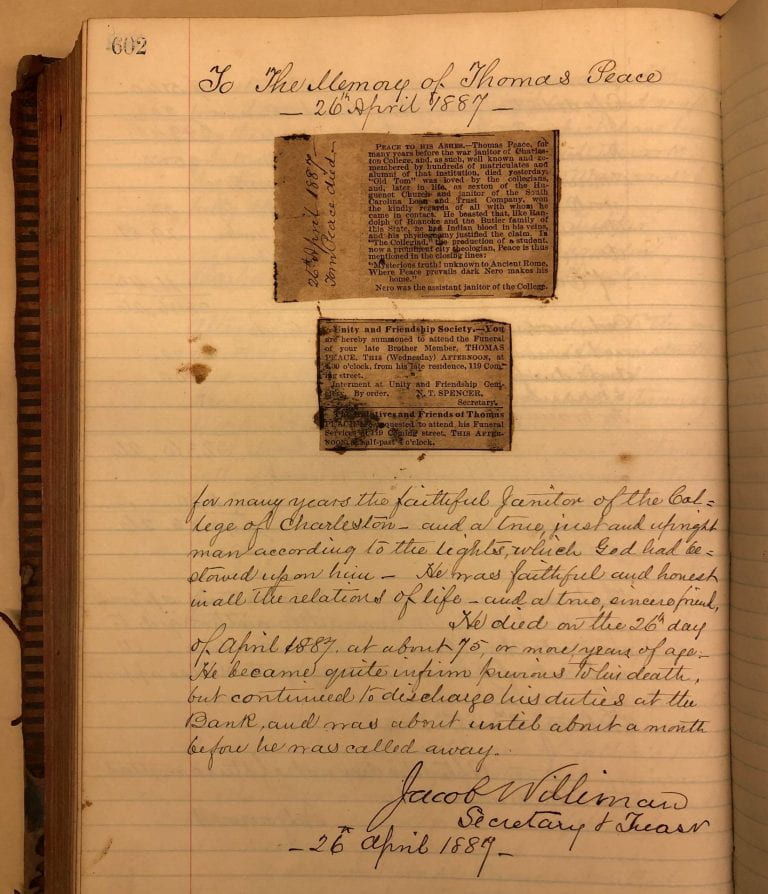 602
To The Memory of Thomas Peace
— 26th April 1887 —
26th April 1887 —
Tom Peace died —
PEACE TO HIS ASHES.—Thomas Peace, for
many years before the war janitor of Charles-
ton College, and, as such, well known and re-
membered by hundreds of matriculates and
alumni of that institution, died yesterday.
"Old Tom" was loved by the collegians,
and, later in life, as sexton of the Hu-
guenot Church and janitor of the South
Carolina Loan and Trust Company, won
the kindly regards of all with whom he
came in contact. He boasted that, like Ran-
dolph of Roanoke and the Butler family of
this State, he had Indian blood in his veins,
and his physiognomy justified the claim. In
"The Collegiad," the production of a student,
now a prominent city theologian, Peace is thus
mentioned in the closing lines:
"Mysterious truth! unknown to Ancient Rome,
Where Peace prevails dark Nero makes his
home."
Nero was the assistant janitor of the College.
Unity and Friendship Society.—You
are hereby summoned to attend the Funeral
of your late Brother Member, THOMAS
PEACE, THIS (Wednesday) AFTERNOON, at
o'clock, from his late residence, 119 Com-
ing street.
Interment at Unity and Friendship Cem-
By order. N. T. SPENCER,
Secretary.
The Relatives and Friends of Thomas
PEACE are requested to attend his Funeral
Services at 119 Coming street, THIS AFTER-
NOON, at half-past 4 o'clock.
for many years the faithful Janitor of the Col=
lege of Charleston — and a true, just and upright
man according to the lights, which God had be=
stowed upon him — He was faithful and honest
in all the relations of life — and a true, sincere friend,
He died on the 26th day
of April 1887. at about 75, or more, years of age —
He became quite infirm previous to his death,
but continued to discharge his duties at the
Bank, and was about until about a month
before he was called away.
Jacob Williman
Secretary & Treasr
— 26th April 1887 —